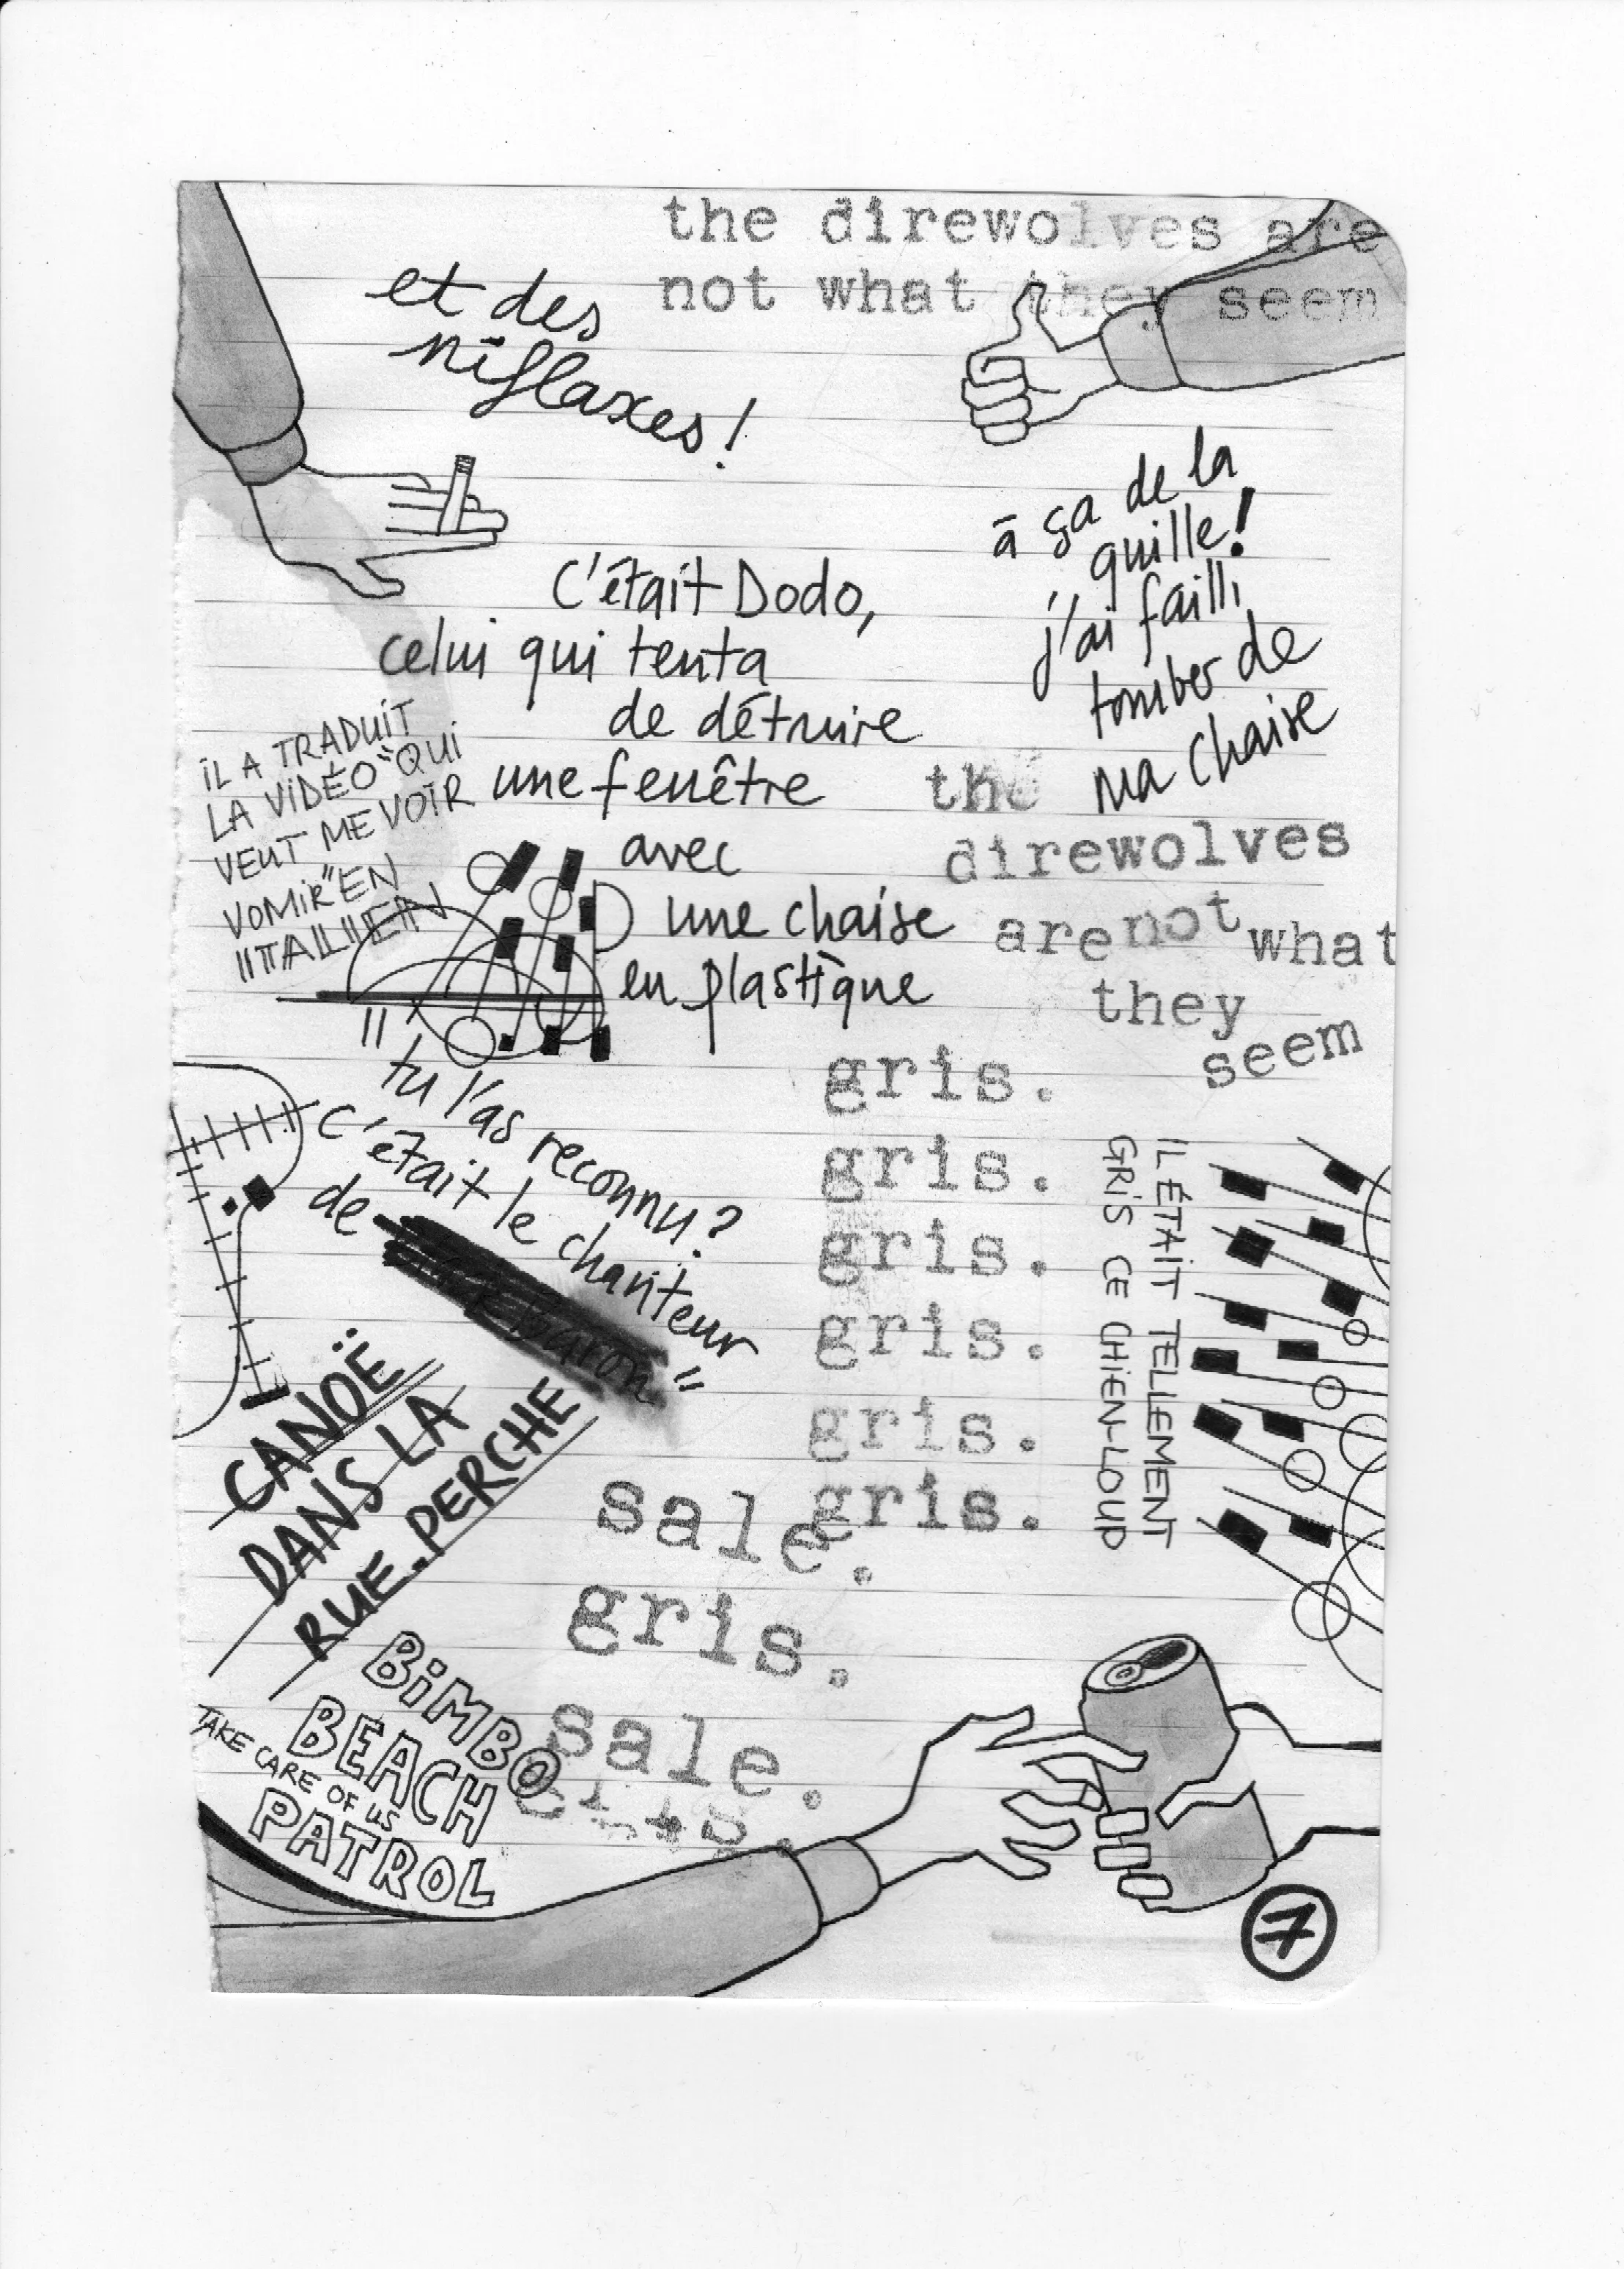 the direwolves are
not what they seem
et des
niflaxes!
à ça de la
quille!
j'ai failli
tomber de
ma chaise
C'était Dodo,
celui qui tenta
de détruire
une fenêtre
avec
une chaise
en plastique
iL A TRADUiT
LA ViDÉO "QUi
VEUT ME VOiR
VOMiR" EN
ITALIEN
the
direwolves
are not what
they
seem
"tu l'as reconnu?
C'était le chanteur
de "
gris.
gris.
gris.
gris.
gris.
gris.
IL ÉTAIT TELLEMENT
GRiS CE CHiEN-LOUP
CANOË
DANS LA
RUE. PERCHE
sale.
gris.
sale.
BiMBO
BEACH
TAKE CARE OF US
PATROL
7